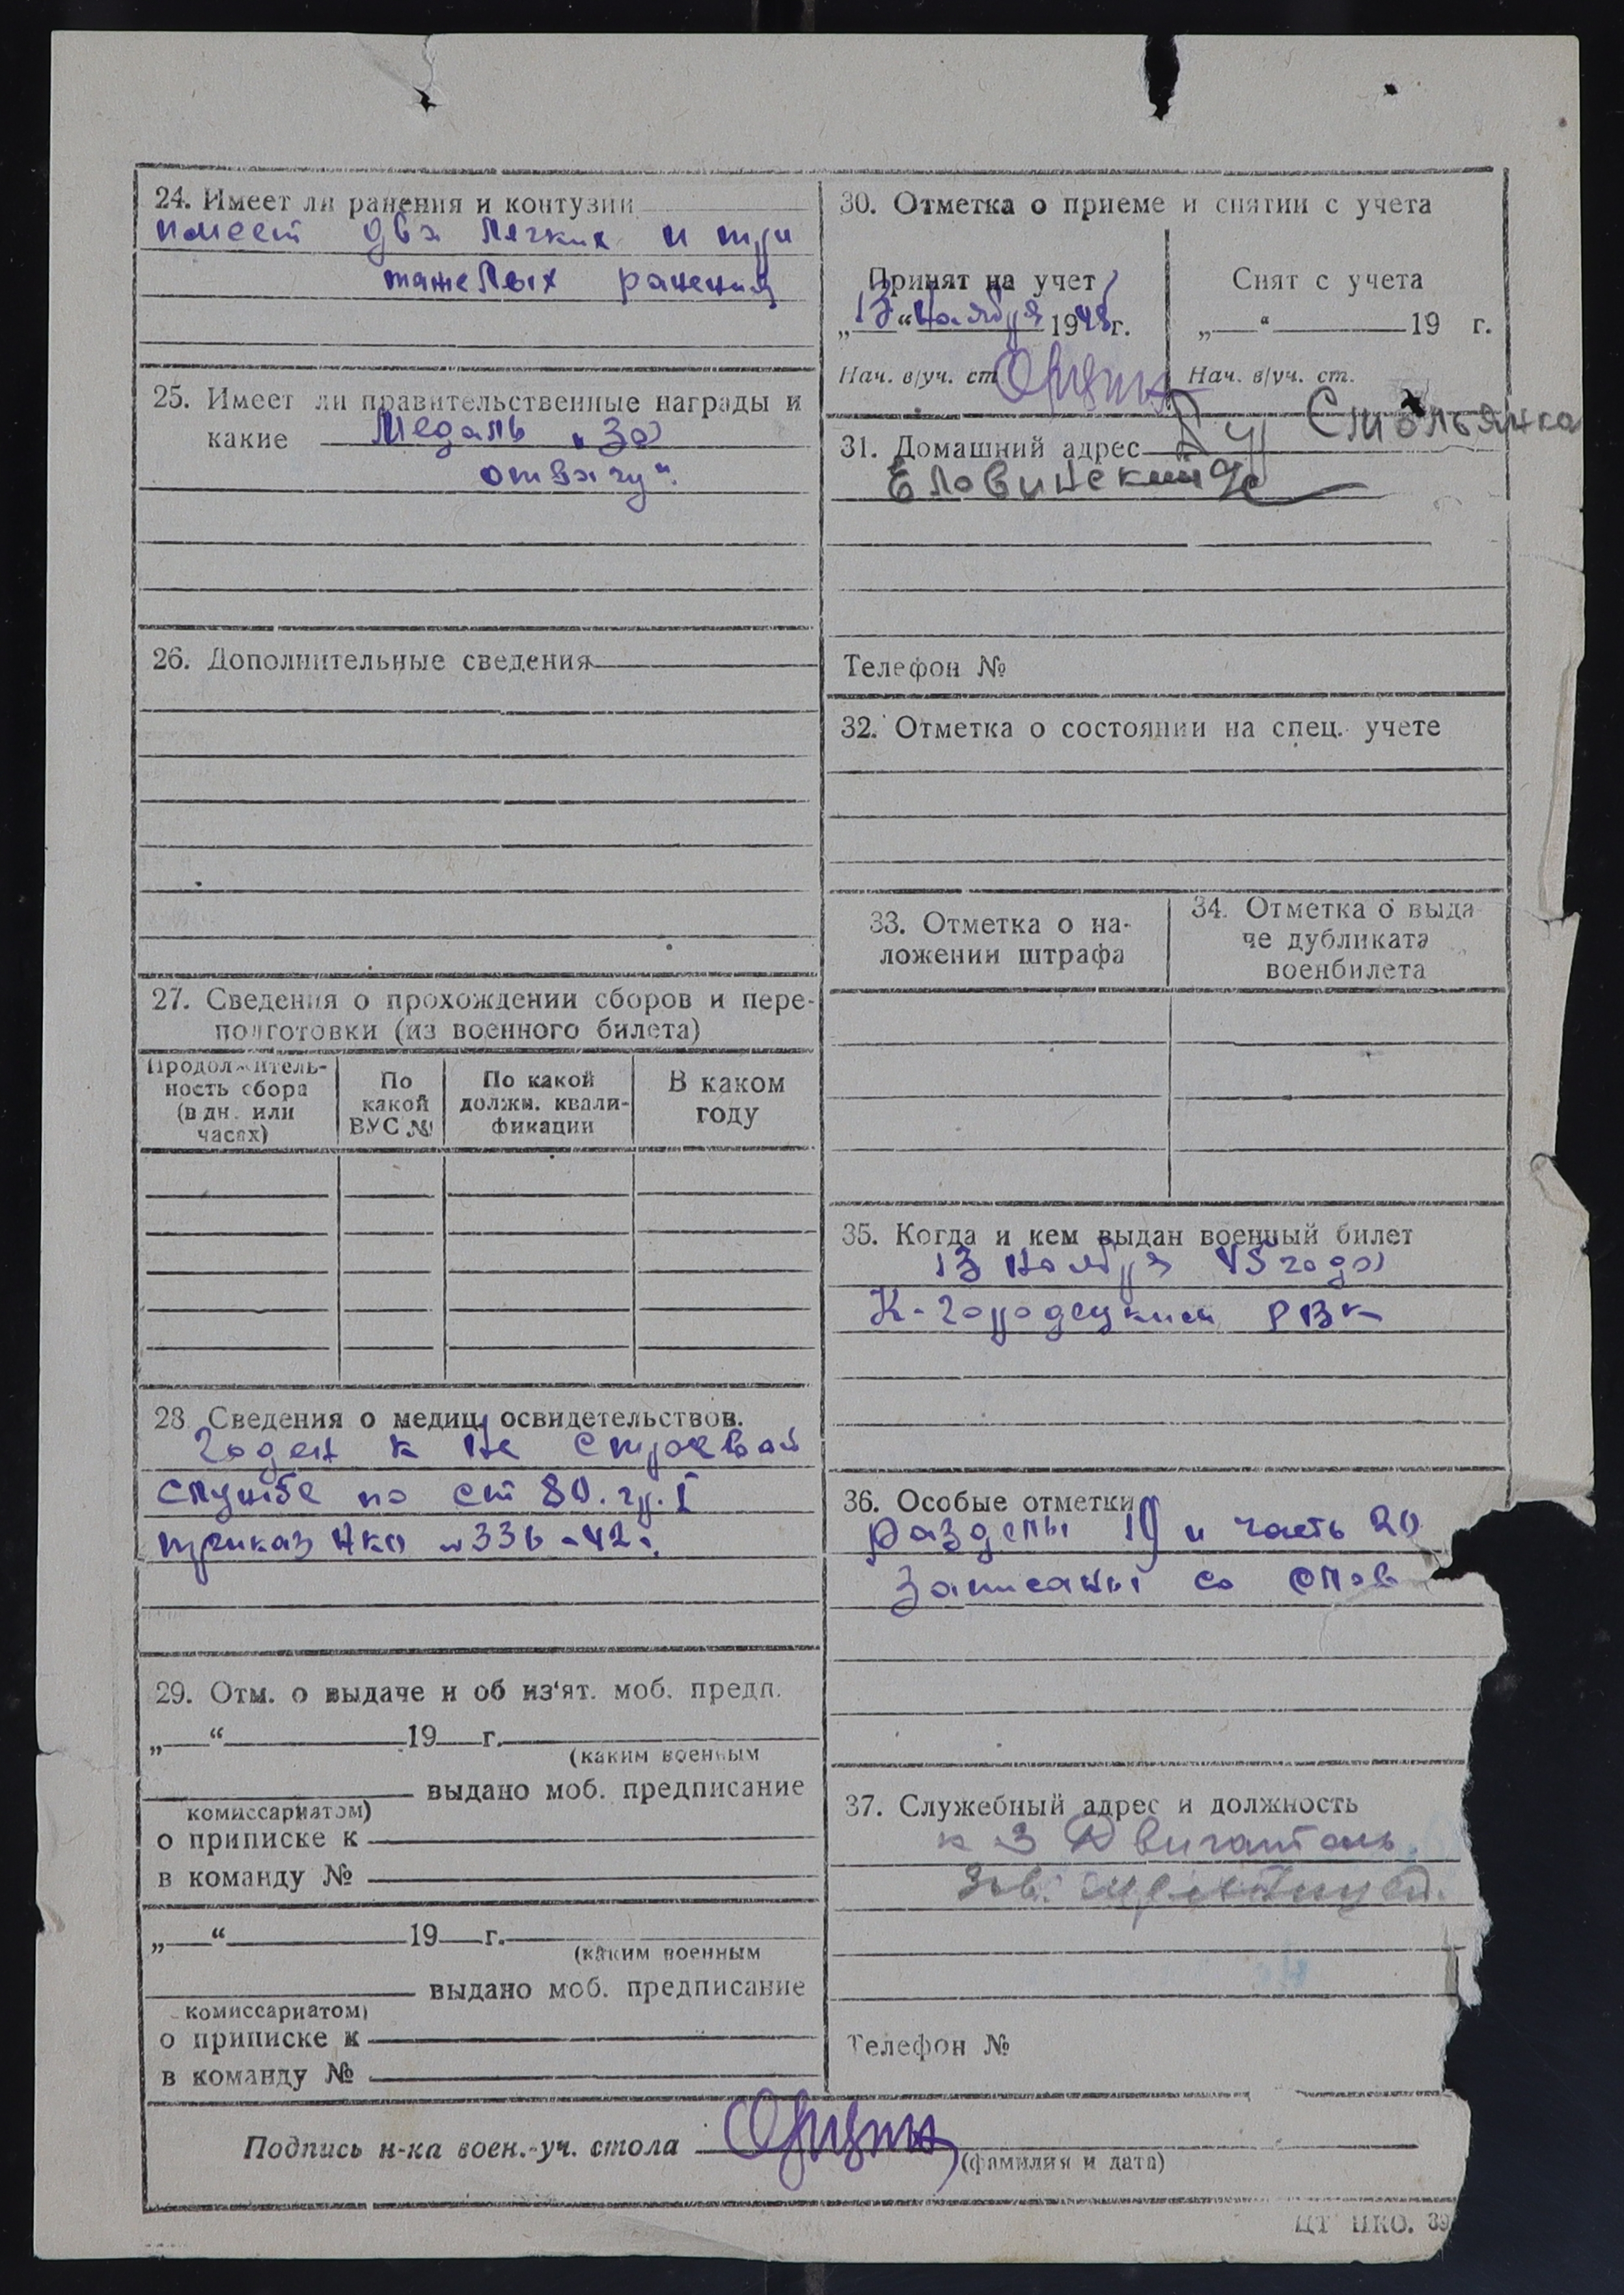 24. Имеет ли ранения и контузии
имеет два легких и три
тяжелых ранения
25. Имеет ли правительственные награды и
какие Медаль „За
отвагу“.
26. Дополнительные сведения
27. Сведения о прохождении сборов и пере-
подготовки (из военного билета)
Продолжитель-
ность сбора
(в дн. или
часах)
По
какой
ВУС №
По какой
должн. квали-
фикации
В каком
году
28 Сведения о медиц. освидетельствов.
Годен к не строевой
службе по ст 80. гр. I
приказ НКО № 336-42г.
29. Отм. о выдаче и об из'ят. моб. предп.
„ “ 19 г.
(каким военным
выдано моб. предписание
комиссариатом)
о приписке к
в команду №
„ “ 19 г.
(каким военным
выдано моб. предписание
комиссариатом)
о приписке к
в команду №
30. Отметка о приеме и снятии с учета
Принят на учет
„13“ Ноября 1945г.
Нач. в/уч. ст.
Снят с учета
„ “ 19 г.
Нач. в/уч. ст.
31. Домашний адрес Смольянка
Еловинский
Телефон №
32. Отметка о состоянии на спец. учете
33. Отметка о на-
ложении штрафа
34. Отметка о выда
че дубликата
военбилета
35. Когда и кем выдан военный билет
13 ноября 45 года
К-Городецким РВК
36. Особые отметки
Разделы 19 и часть 20
Записаны со слов
37. Служебный адрес и должность
к-з Двигатель
Зав.
Телефон №
Подпись н-ка воен.-уч. стола
(фамилия и дата)
ЦТ НКО. 39